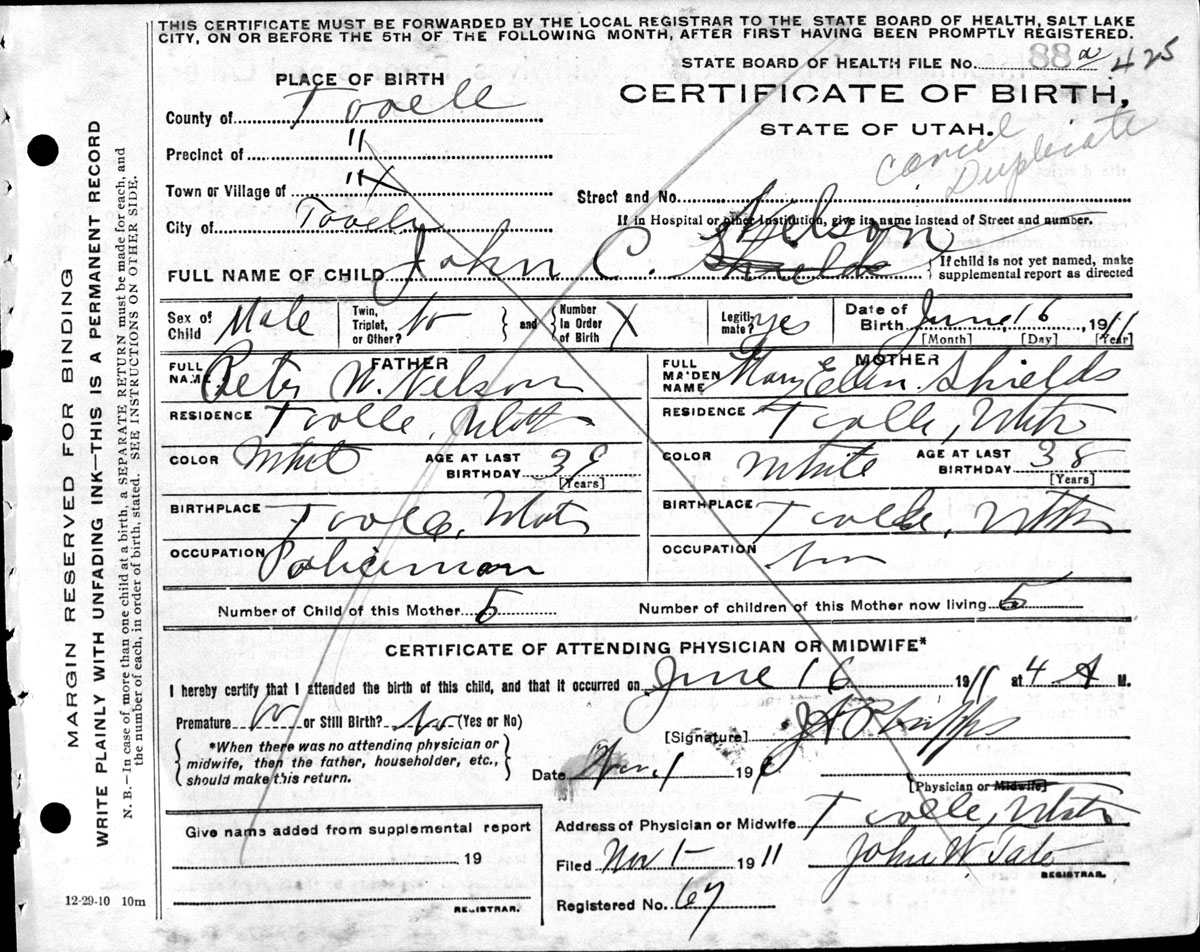 THIS CERTIFICATE MUST BE FORWARDED BY THE LOCAL REGISTRAR TO THE STATE BOARD OF HEALTH, SALT LAKE
CITY, ON OR BEFORE THE 5TH OF THE FOLLOWING MONTH, AFTER FIRST HAVING BEEN PROMPTLY REGISTERED.
STATE BOARD OF HEALTH FILE No. 88 a 425
PLACE OF BIRTH
CERTIFICATE OF BIRTH,
STATE OF UTAH.
Cancel
Duplicate
County of Tooele
Precinct of "
Town or Village of " X
Street and No.
If in Hospital or other Institution, give its name instead of Street and number.
City of Tooele
Nelson
FULL NAME OF CHILD John C. Shields
{ If child is not yet named, make
supplemental report as directed
Sex of Child Male
Twin, Triplet, or Other? No
} and { Number In Order of Birth X
Legitimate? yes
Date of Birth June, 16, 1911
[Month] [Day] [Year]
FATHER
FULL NAME Peter W. Nelson
RESIDENCE Tooele, Utah
COLOR White AGE AT LAST BIRTHDAY 39
[Years]
BIRTHPLACE Tooele, Utah
OCCUPATION Policeman
MOTHER
FULL MAIDEN NAME Mary Ellen Shields
RESIDENCE Tooele, Utah
COLOR White AGE AT LAST BIRTHDAY 38
[Years]
BIRTHPLACE Tooele, Utah
OCCUPATION
Number of Child of this Mother 5 Number of children of this Mother now living 5
CERTIFICATE OF ATTENDING PHYSICIAN OR MIDWIFE*
I hereby certify that I attended the birth of this child, and that it occurred on June 16 1911 at 4 A M.
Premature No or Still Birth? No (Yes or No)
{ *When there was no attending physician or
midwife, then the father, householder, etc.,
should make this return. }
[Signature] J A Phipps
Date Nov. 1 191
[Physician or Midwife]
Give name added from supplemental report
19
REGISTRAR.
Address of Physician or Midwife Tooele, Utah
Filed Nov 1 - 1911 John W Tate
REGISTRAR.
Registered No. 67
12-29-10 10m
MARGIN RESERVED FOR BINDING
WRITE PLAINLY WITH UNFADING INK—THIS IS A PERMANENT RECORD
N. B.—In case of more than one child at a birth, a SEPARATE RETURN must be made for each, and
the number of each, in order of birth, stated. SEE INSTRUCTIONS ON OTHER SIDE.